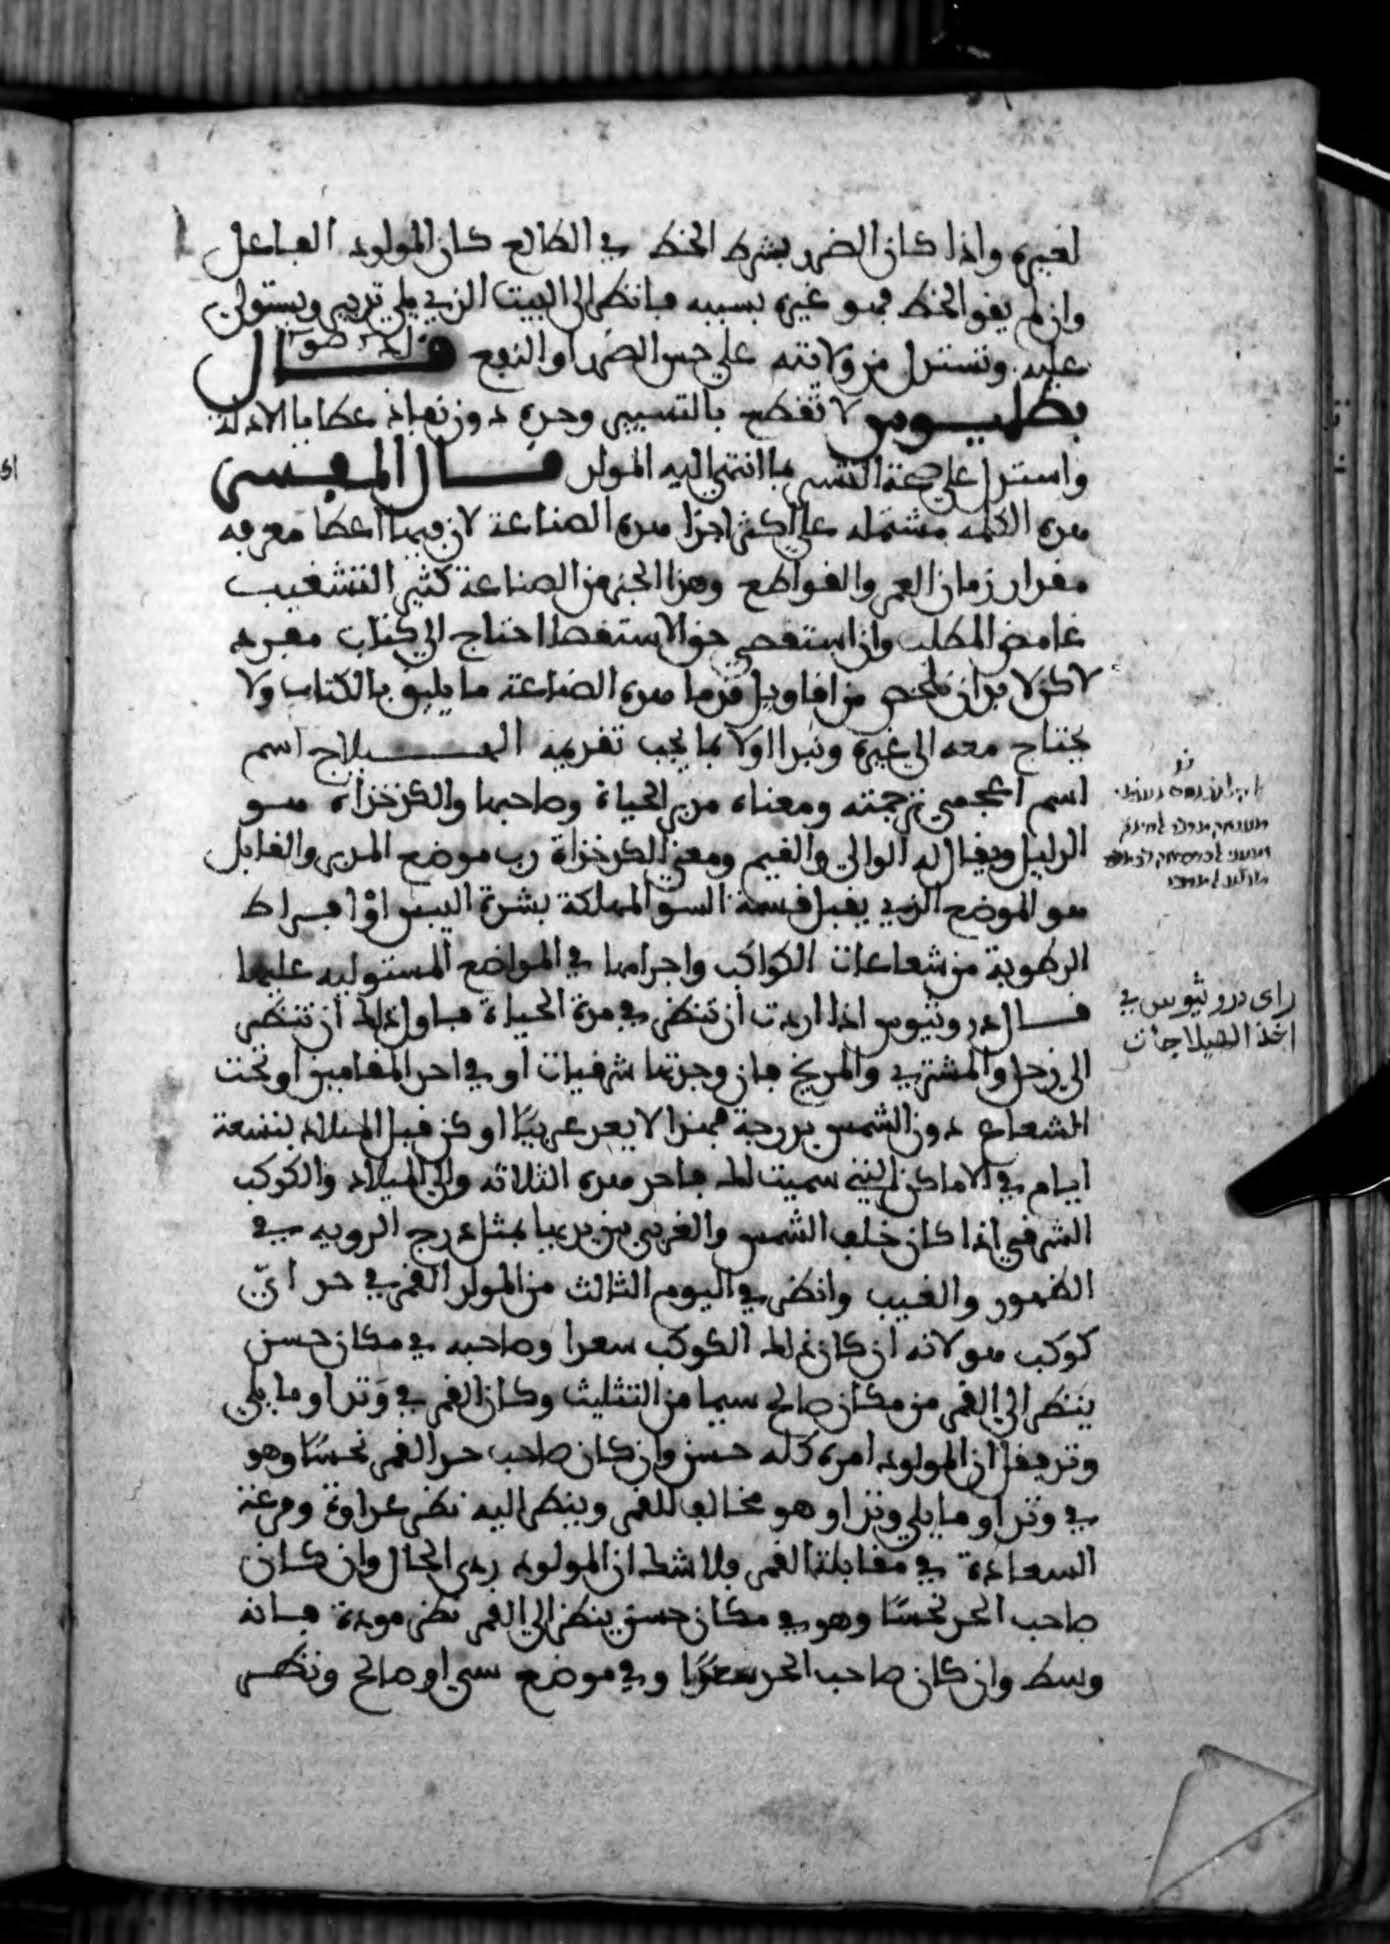 لغيره واذا كان الضرر بشرط الخط في الطالع كان المولود الفاعل
وان لم يقو الخط فهو غيره بسببه فانظر الى البيت الذي يلي تربيع ويستولى
عليه وتستدل من ولايته على جنس الضرر او النفع قــال
بطلـيـوس لا تقطع بالتسيير وحده دون نفاذ عطايا الادلة
واستدل على صحة التسيير ما انتهى اليه المولد قــال المفسـر
هذه الكلمه مشتمله على اكثر اجزا هذه الصناعة لان فيها اعطا معرفه
مقدار زمان العمر والقواطع وهذا الجزء من الصناعة كثير التشغيب
غامض المطلب وان استقصى حق الاستقصا احتاج الى كتاب مفرد
لاكن لا بد ان نلخص من اقاويل قدما هذه الصناعة ما يليق بالكتاب ولا
يحتاج معه الى غيره ونبدا اولا بما يجب تقديمه الهـــيلاج اسم
اسم اعجمي ترجمته ومعناه مدبر الحياة وصاحبها والكدخداه هـو
الدليل ويقال له الوالي والقيم ومعنى الكدخداة رب موضع المدبر والقابل
هو الموضع الذي يقبل قسمة السو المهلكة بشدة اليبس او افـراط
الرطوبة من شعاعات الكواكب واجرامها في المواضع المستوليه عليها
قــال دروثيوس اذا اردت ان تنظر في مدة الحياة فاول ذلك ان تنظر
الى زحل والمشتري والمريخ فان وجدتها شرقيات او في احد المقامين او تحت
الشعاع دون الشمس بدرجة فهذا لا يعد غربيًا او كن قبل الميلاد بتسعة
ايام في الاماكن التي سميت لك فاحد هذه الثلاثه والي الميلاد والكوكب
الشرقي اذا كان خلف الشمس والغربي بين يديها بمثل درج الرويه في
الظهور والغيب وانظر في اليوم الثالث من المولد القمر في حد ايّ
كوكب هو لانه ان كان ذلك الكوكب سعدا وصاحبه في مكان حسن
ينظر الى القمر من مكان صالح سيما من التثليث وكان القمر في وَتد او ما يلي
وتد فقل ان المولود امره كله حسن وان كان صاحب حد القمر نحسًا وهو
في وتد او ما يلي وتد او هو مخالف للقمر وينظر اليه نظر عداوة ومرغة
السعادة في مقابلة القمر فلا شك ان المولود ردى الحال وان كان
صاحب الحد نحسًا وهو في مكان حسن ينظر الى القمر نظر مودة فـانه
وسط وان كان صاحب الحد سعدًا وفي موضع سيي او صالح ونظـر
راى دروثيوس في
اخذ الهيلاجات